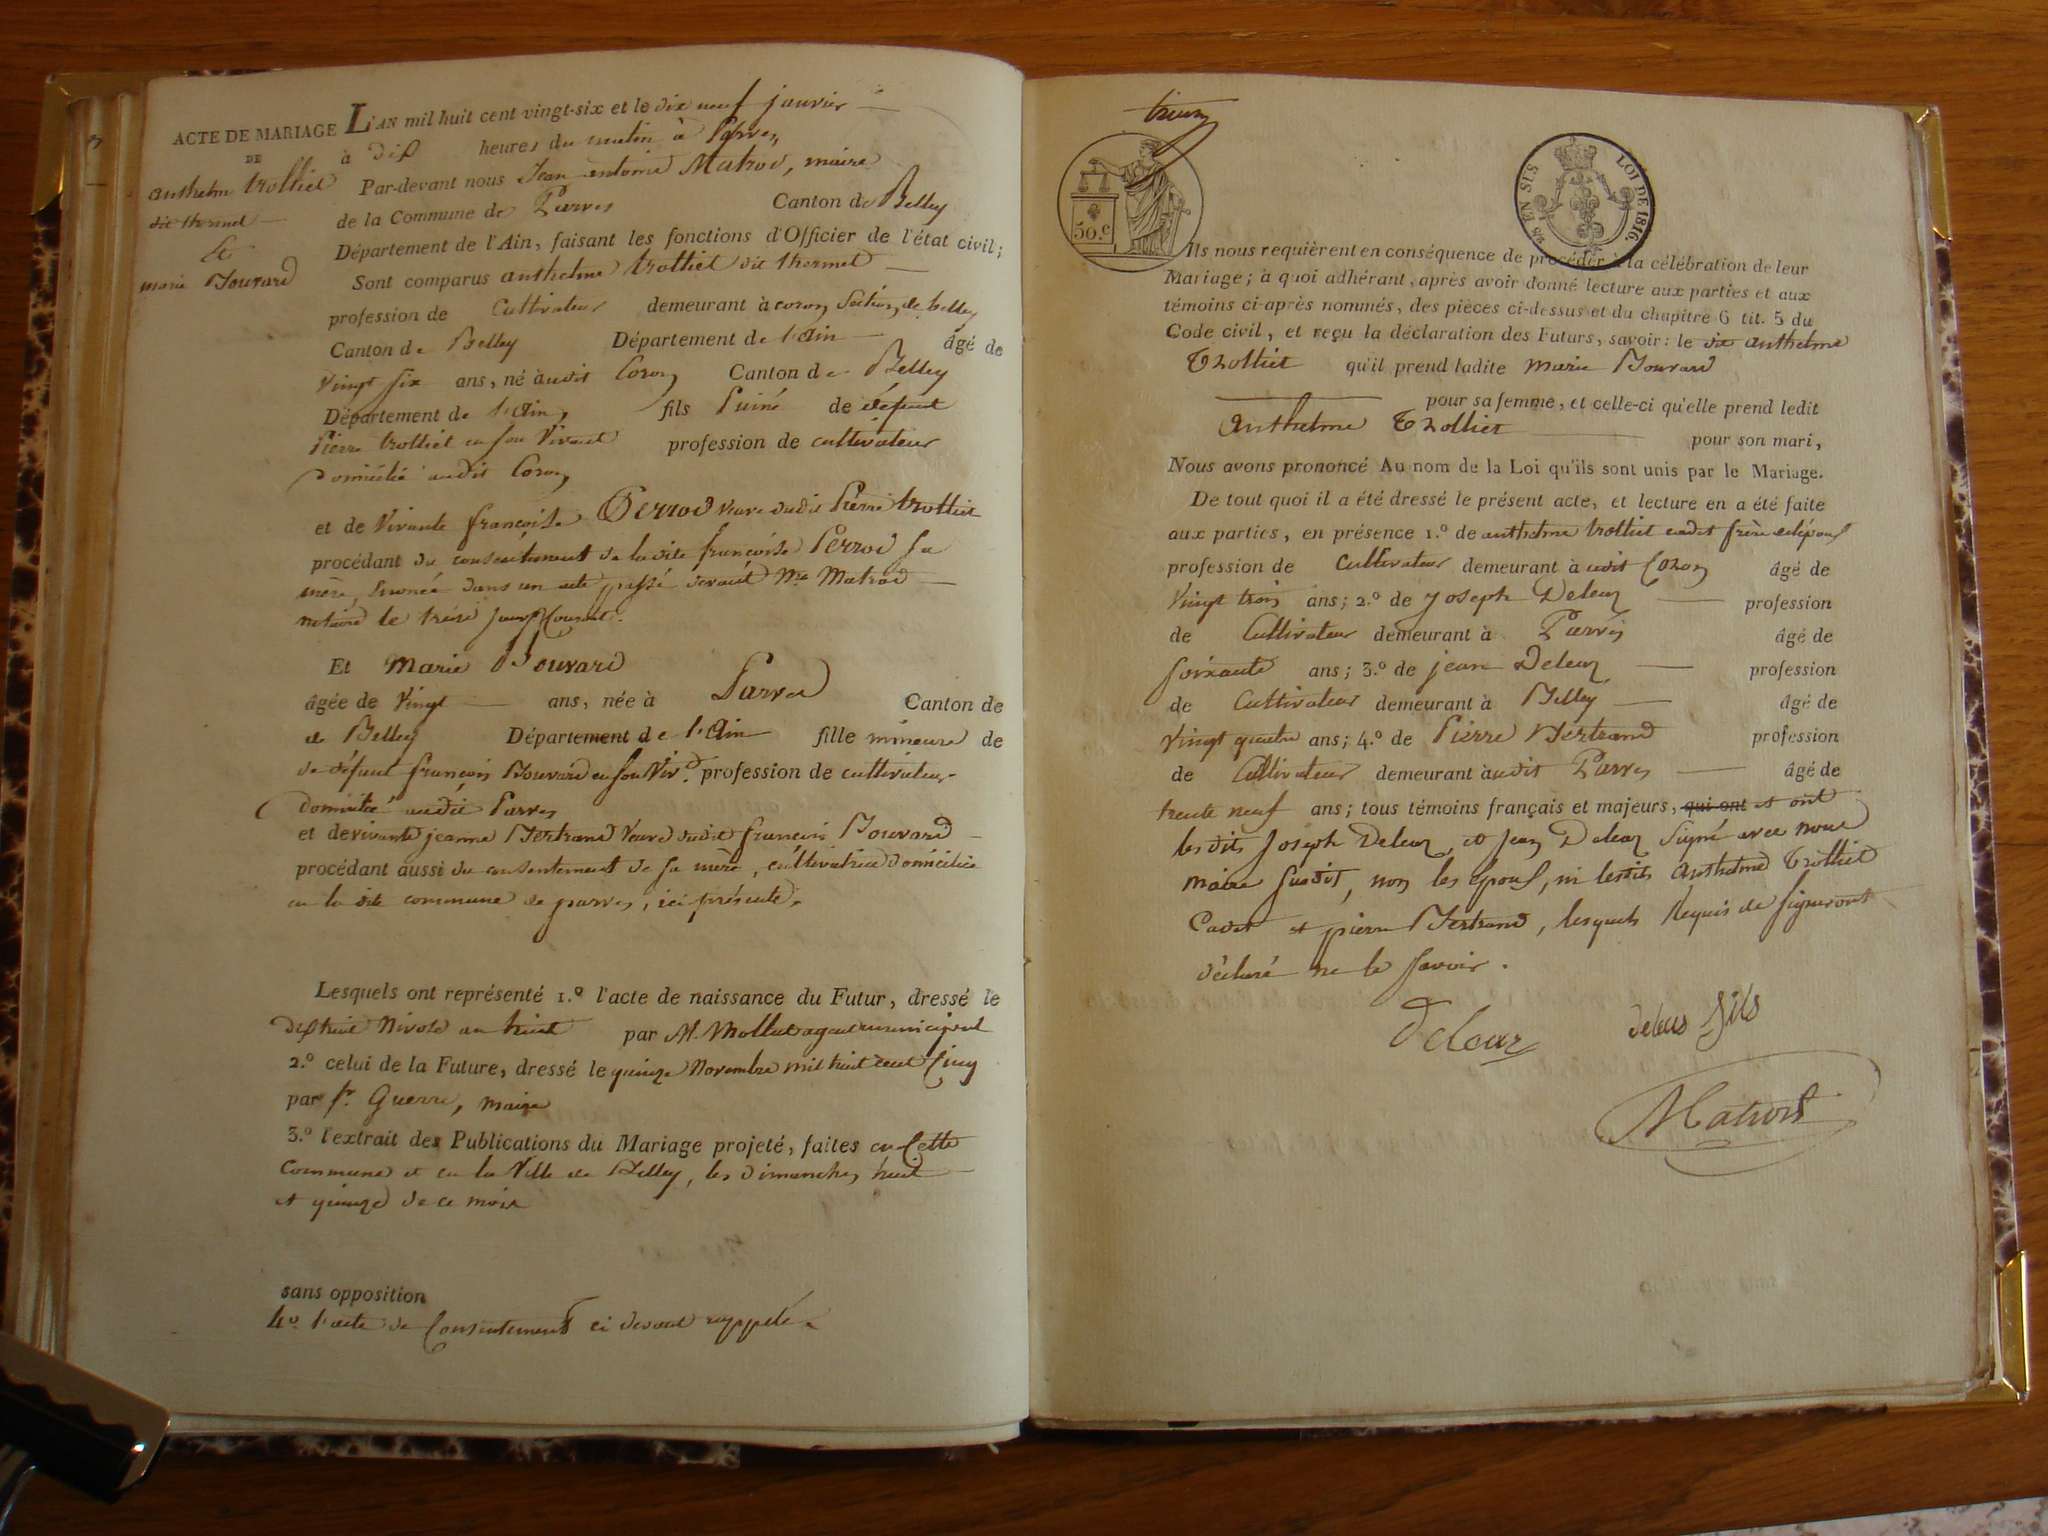 ACTE DE MARIAGE
DE
anthelm trolliet
dit thermet
Et
marie Bouvard
L'AN mil huit cent vingt-six et le dix neuf janvier
à dix heures du matin à Parves,
Par-devant nous Jean antoine Matrod, maire
de la Commune de Parves Canton de Belley
Département de l'Ain, faisant les fonctions d'Officier de l'état civil;
Sont comparus anthelme trolliet dit thermet
profession de Cultivateur demeurant à coron Section de belley
Canton de Belley Département de l'Ain âgé de
Vingt six ans, né audit Coron Canton de Belley
Département de l'Ain, fils Puiné de défunt
Pierre trolliet en son Vivant profession de cultivateur
Domicilié audit Coron
et de Vivante françoise Perrod veuve dudit Pierre trolliet
procédant du consentement de ladite françoise Perrod Sa
mère, énoncé dans un acte passé devant Me Matrod
notaire le treize Courant.
Et Marie Bouvard
âgée de Vingt ans, née à Parves Canton de
de Belley Département de l'Ain fille mineure de
de défunt françois Bouvard en son Viv.t profession de cultivateur
domicilié audit Parves
et de vivante jeanne Bertrand Veuve dudit françois Bouvard
procédant aussi du consentement de sa mère, cultivatrice domiciliée
en la dite commune de parves, ici présente.
Lesquels ont représenté 1.º l'acte de naissance du Futur, dressé le
dix huit Nivose an huit par M. Mollet agent municipal
2.º celui de la Future, dressé le quinze Novembre mil huit cent Cinq
par Sr. Guerre, maire
3.º l'extrait des Publications du Mariage projeté, faites en Cette
Commune et en la Ville de Belley, les dimanches huit
et quinze de ce mois
sans opposition
4º l'acte de Consentement ci devant rappelé.
50.c
25 EN SUS LOI DE 1816.
Ils nous requièrent en conséquence de procéder à la célébration de leur
Mariage; à quoi adhérant, après avoir donné lecture aux parties et aux
témoins ci-après nommés, des pièces ci-dessus et du chapitre 6 tit. 5 du
Code civil, et reçu la déclaration des Futurs, savoir: le dit anthelme
Trolliet qu'il prend ladite marie Bouvard
pour sa femme, et celle-ci qu'elle prend ledit
Anthelme Trolliet pour son mari,
Nous avons prononcé Au nom de la Loi qu'ils sont unis par le Mariage.
De tout quoi il a été dressé le présent acte, et lecture en a été faite
aux parties, en présence 1.º de anthelme trolliet cadet frère de l'époux
profession de Cultivateur demeurant à udit Coron âgé de
Vingt trois ans; 2.º de Joseph Deleaz profession
de Cultivateur demeurant à Parves âgé de
Soixante ans; 3.º de jean Deleaz profession
de Cultivateur demeurant à Belley âgé de
Vingt quatre ans; 4.º de Pierre Bertrand profession
de Cultivateur demeurant audit Parves âgé de
trente neuf ans; tous témoins français et majeurs, qui ont et ont
les dits Joseph Deleaz, et Jean Deleaz Signé avec nous
maire Susdit, non les époux, ni lesdits Anthelme Trolliet
Cadet et pierre Bertrand, lesquels Requis de Signer ont
déclaré ne le Savoir.
Deleaz deleas fils
Matrod